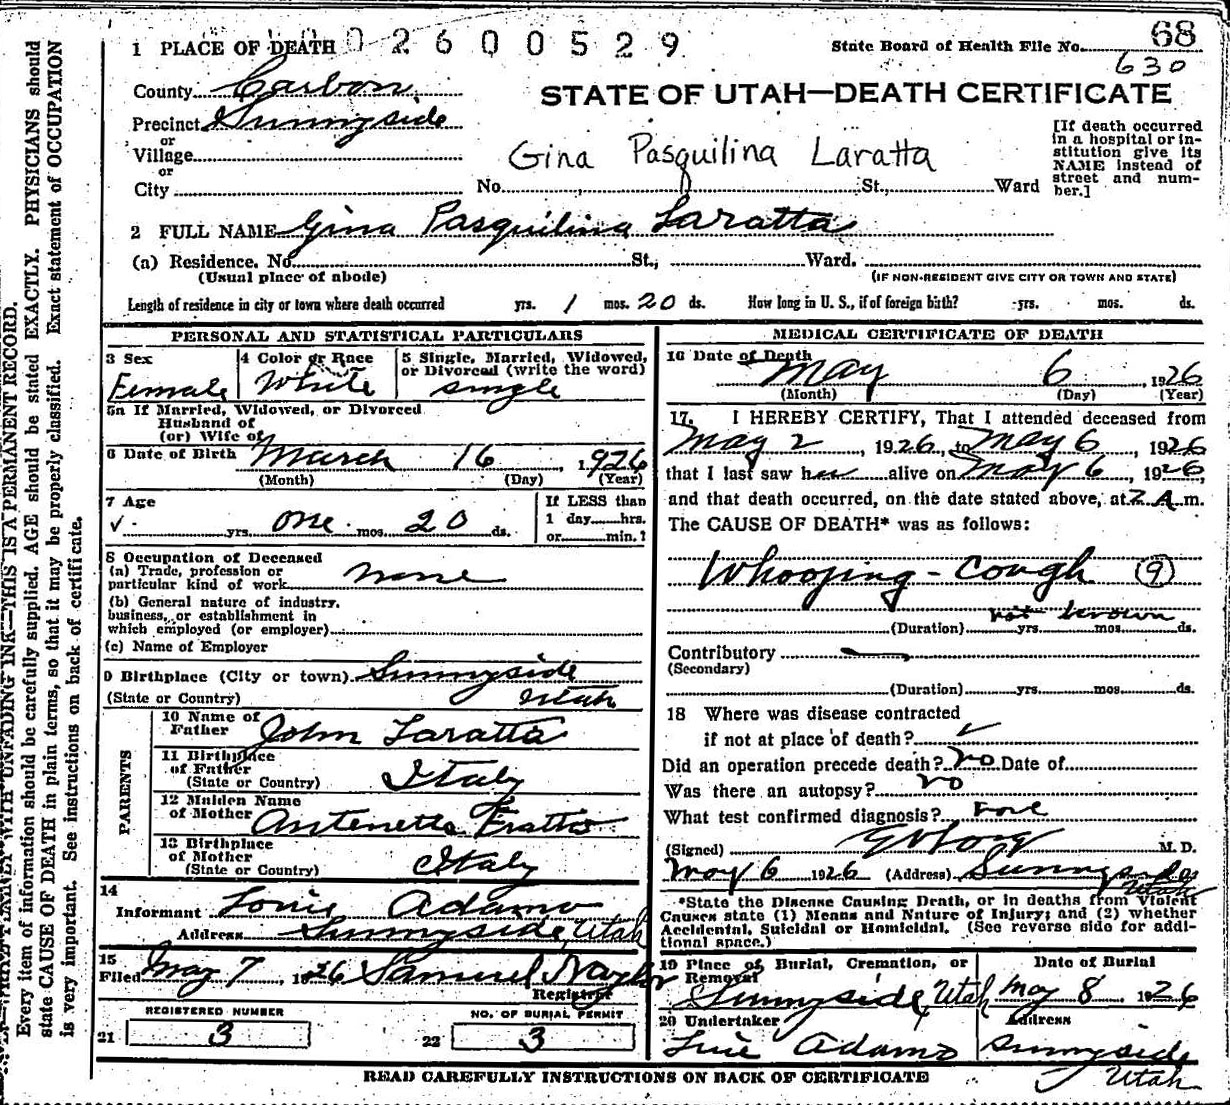 1 PLACE OF DEATH 0 2 6 0 0 5 2 9
State Board of Health File No. 68
630
County Carbon
STATE OF UTAH—DEATH CERTIFICATE
Precinct Sunnyside
or
Village
or
City
Gina Pasquilina Laratta
No. St., Ward
[If death occurred
in a hospital or in-
stitution give its
NAME instead of
street and num-
ber.]
2 FULL NAME Gina Pasquilina Laratta
(a) Residence. No. St., Ward.
(Usual place of abode)
(IF NON-RESIDENT GIVE CITY OR TOWN AND STATE)
Length of residence in city or town where death occurred yrs. 1 mos. 20 ds. How long in U. S., if of foreign birth? yrs. mos. ds.
PERSONAL AND STATISTICAL PARTICULARS
3 Sex
Female
4 Color or Race
White
5 Single, Married, Widowed,
or Divorced (write the word)
single
5a If Married, Widowed, or Divorced
Husband of
(or) Wife of
6 Date of Birth March 16, 1926
(Month) (Day) (Year)
7 Age
yrs. one mos. 20 ds.
If LESS than
1 day hrs.
or min.?
8 Occupation of Deceased
(a) Trade, profession or
particular kind of work none
(b) General nature of industry,
business, or establishment in
which employed (or employer)
(c) Name of Employer
9 Birthplace (City or town) Sunnyside
(State or Country) Utah
PARENTS
10 Name of
Father John Laratta
11 Birthplace
of Father
(State or Country) Italy
12 Maiden Name
of Mother Antenette Fratto
13 Birthplace
of Mother
(State or Country) Italy
14
Informant Louie Adamo
Address Sunnyside, Utah
15
Filed May 7 1926 Samuel Naylor
Registrar
REGISTERED NUMBER
21 3
NO. OF BURIAL PERMIT
22 3
MEDICAL CERTIFICATE OF DEATH
16 Date of Death
May 6, 1926
(Month) (Day) (Year)
17. I HEREBY CERTIFY, That I attended deceased from
May 2, 1926, to May 6, 1926
that I last saw her alive on May 6, 1926,
and that death occurred, on the date stated above, at 2 A. m.
The CAUSE OF DEATH* was as follows:
Whooping-Cough 9
(Duration) not known yrs. mos. ds.
Contributory
(Secondary)
(Duration) yrs. mos. ds.
18 Where was disease contracted
if not at place of death?
Did an operation precede death? no Date of
Was there an autopsy? no
What test confirmed diagnosis? none
(Signed) M. D.
May 6 1926 (Address) Sunnyside
Utah
*State the Disease Causing Death, or in deaths from Violent
Causes state (1) Means and Nature of Injury; and (2) whether
Accidental, Suicidal or Homicidal. (See reverse side for addi-
tional space.)
19 Place of Burial, Cremation, or
Removal
Sunnyside, Utah
Date of Burial
May 8 1926
20 Undertaker
Louie Adamo
Address
Sunnyside
Utah
READ CAREFULLY INSTRUCTIONS ON BACK OF CERTIFICATE
THIS IS A PERMANENT RECORD.
Every item of information should be carefully supplied. AGE should be stated EXACTLY. PHYSICIANS should
state CAUSE OF DEATH in plain terms, so that it may be properly classified. Exact statement of OCCUPATION
is very important. See instructions on back of certificate.